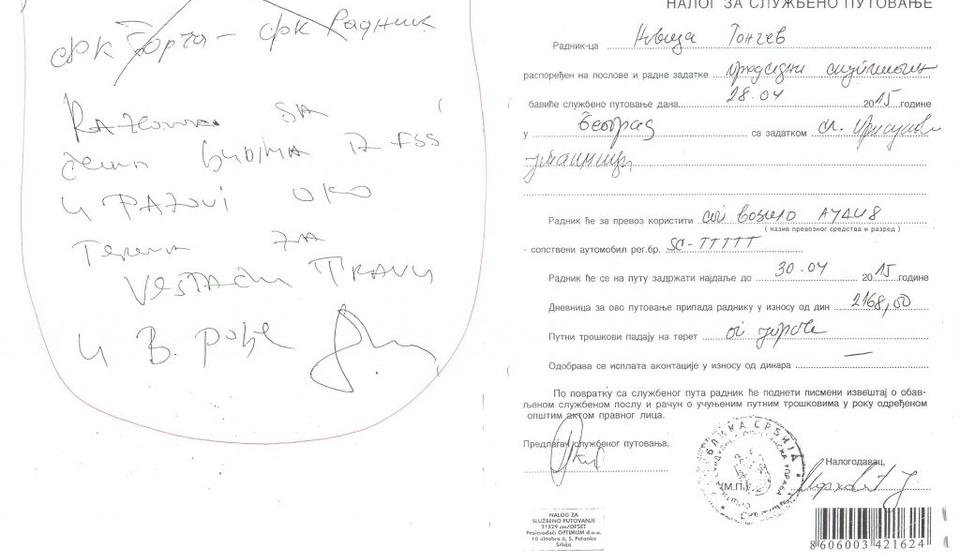 ФК Борча – ФК Радник
SA
IZ FSS
И PAZOVI OKO
ТЕРЕНА ZA
VEŠTAČKU TRAVU
И В.
НАЛОГ ЗА СЛУЖБЕНО ПУТОВАЊЕ
Радник-ца Новица Тончев
распоређен на послове и радне задатке председник скупштине
бавиће службено путовање дана 28.04 2015 године
у Београд са задатком сл.
Радник ће за превоз користити сл возило АУДИ 8
( назив превозног средства и разред )
- сопствени аутомобил рег.бр. SC-TTTTT
Радник ће се на путу задржати најдаље до 30.04 2015 године
Дневница за ово путовање припада раднику у износу од дин 2168,50
Путни трошкови падају на терет
Одобрава се исплата аконтације у износу од динара —
По повратку са службеног пута радник ће поднети писмени извештај о обав-
љеном службеном послу и рачун о учуњеним путним трошковима у року одређеном
општим актом правног лица.
Предлагач службеног путовања,
Налогодавац,
(М.П.)
NALOG ZA
SLUŽBENO PUTOVANJE
21X29 cm/OFSET
Proizvođač: OPTIMUM d.o.o.
10 oktobra 6, S. Palanka
Srbija
8 606003 421624